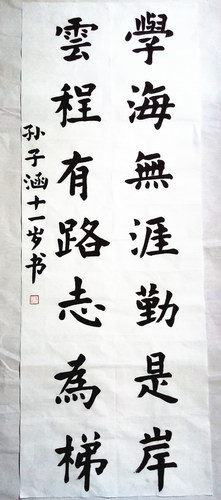 學海無涯勤是岸
雲程有路志為梯
孙子涵十一岁书